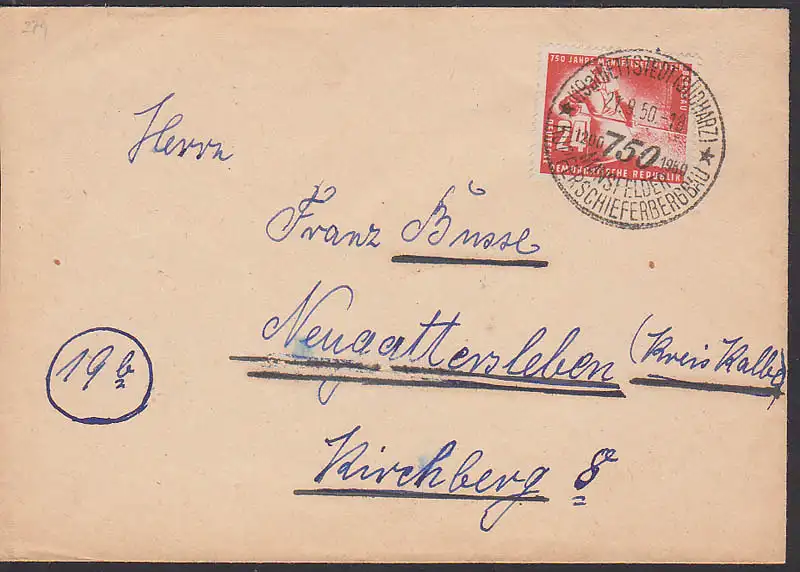 274
750 JAHRE MANSFELDER
DEUTSCHE
DEMOKRATISCHE REPUBLIK
24
HETTSTEDT (SÜDHARZ)
21.9.50.-18
1200 750 1950
MANSFELDER
KUPFERSCHIEFERBERGBAU
Herrn
Franz Busse
Neugattersleben (Kreis Kalbe)
19b
Kirchberg 8